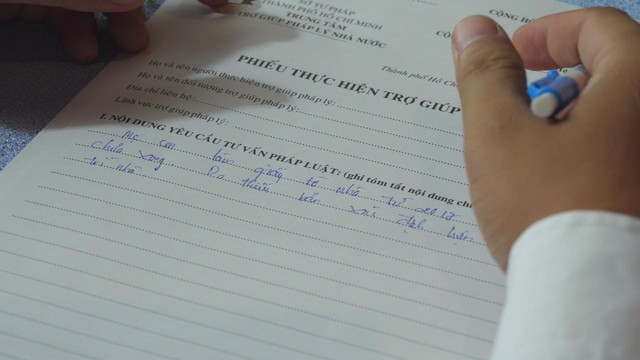 SỞ TƯ PHÁP
THÀNH PHỐ HỒ CHÍ MINH
TRUNG TÂM
TRỢ GIÚP PHÁP LÝ NHÀ NƯỚC
CỘNG H
Thành phố Hồ Ch
PHIẾU THỰC HIỆN TRỢ GIÚP
Họ và tên người thực hiện trợ giúp pháp lý:
Họ và tên đối tượng trợ giúp pháp lý:
Địa chỉ liên hệ
Lĩnh vực trợ giúp pháp lý:
I. NỘI DUNG YÊU CẦU TƯ VẤN PHÁP LUẬT: (ghi tóm tắt nội dung ch
Mẹ con làm giấy tờ nhà
chưa xong thiếu bản xác định